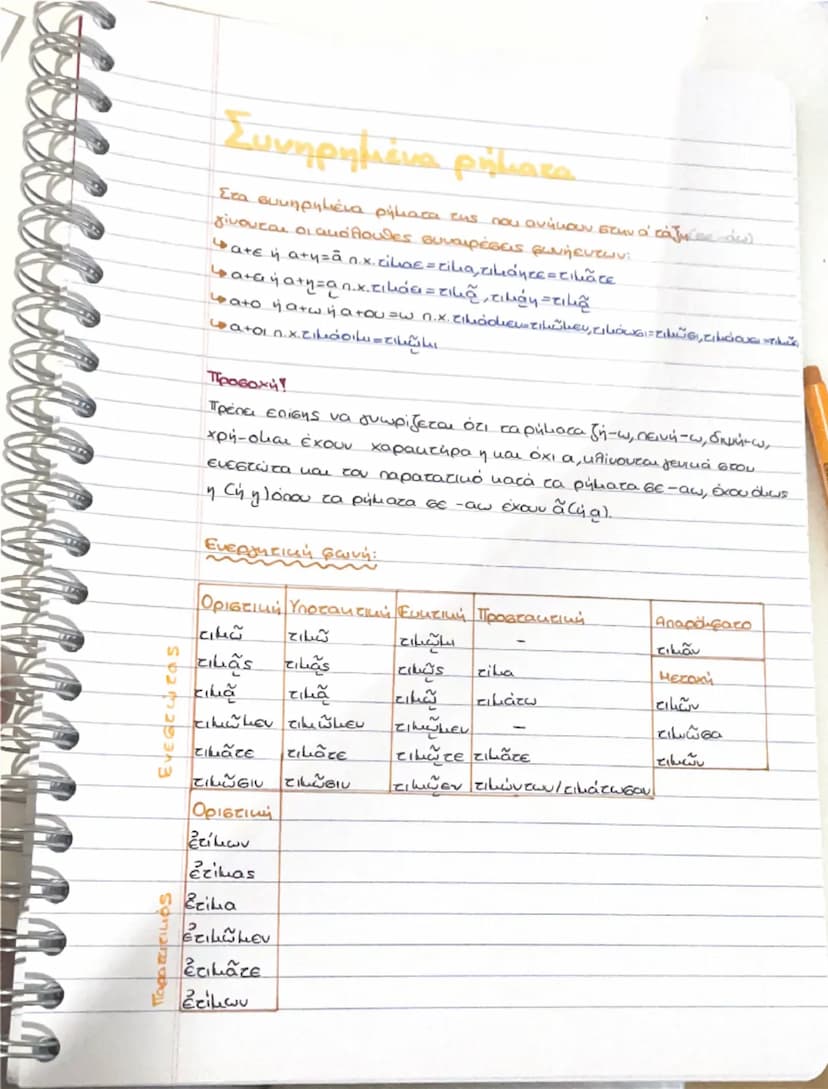 Συνηρημένα ρήματα
Στα συνηρημένα ρήματα της που ανήκουν στην α' τάξη (σε -άω)
γίνονται οι ακόλουθες συναιρέσεις φωνήεντων:
↳ α+ε ή α+η=ᾱ π.χ. τίμαε=τίμα, τιμάητε=τιμᾶτε
↳ α+ει ή α+ῃ=ᾳ π.χ. τιμάει=τιμᾷ, τιμάῃ=τιμᾷ
↳ α+ο ή α+ω ή α+ου=ω π.χ. τιμάομεν=τιμῶμεν, τιμάωσι=τιμῶσι, τιμάουσι=τιμῶσι
↳ α+οι π.χ. τιμάοιμι=τιμῷμι
Προσοχή!
Πρέπει επίσης να γνωρίζεται ότι τα ρήματα ζή-ω, πεινή-ω, διψή-ω,
χρή-ομαι έχουν χαρακτήρα η και όχι α, κλίνονται γενικά στον
ενεστώτα και τον παρατατικό κατά τα ρήματα σε -αω, έχουν όμως
η (ή ῃ) όπου τα ρήματα σε -αω έχουν ᾶ (ή ᾳ).
Ενεργητική φωνή:
Ενεστώτας
Οριστική Υποτακτική Ευκτική Προστακτική Απαρέμφατο
τιμῶ τιμῶ τιμῷμι - τιμᾶν
τιμᾷς τιμᾷς τιμῷς τίμα Μετοχή
τιμᾷ τιμᾷ τιμῷ τιμάτω τιμῶν
τιμῶμεν τιμῶμεν τιμῷμεν - τιμῶσα
τιμᾶτε τιμᾶτε τιμῷτε τιμᾶτε τιμῶν
τιμῶσιν τιμῶσιν τιμῷεν τιμώντων/τιμάτωσαν
Παρατατικός
Οριστική
ἐτίμων
ἐτίμας
ἐτίμα
ἐτιμῶμεν
ἐτιμᾶτε
ἐτίμων